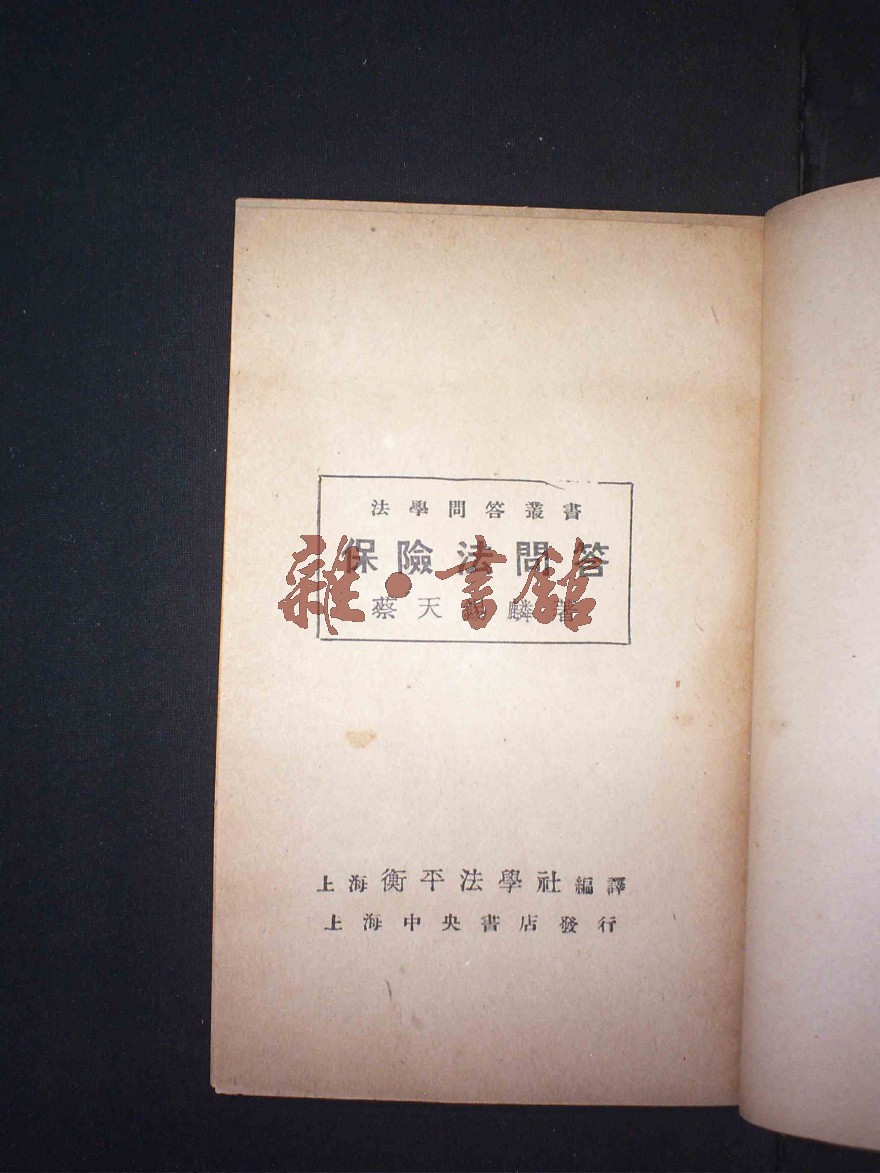 法學問答叢書
保險法問答
蔡天錫麟著
雜·書館
上海衡平法學社編譯
上海中央書店發行